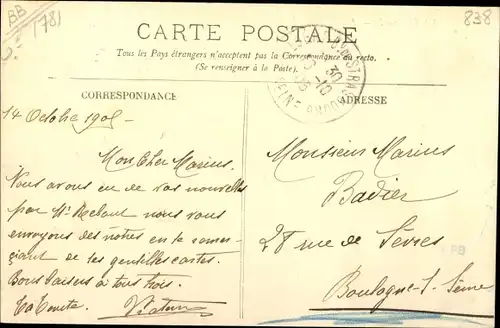 BB
1781
838
CARTE POSTALE
Tous les Pays étrangers n'acceptent pas la Correspondance au recto.
(Se renseigner à la Poste.)
CORRESPONDANCE
ADRESSE
14 Octobre 1905
Mon Cher Marius.
Nous avons eu de vos nouvelles
par Mr nous vous
envoyons des nôtres en te remer-
çiant de tes gentilles cartes.
Bons baisers à tous trois.
Ta
Monsieur Marius
Badier
28 rue de Sèvres
Boulogne-s-Seine